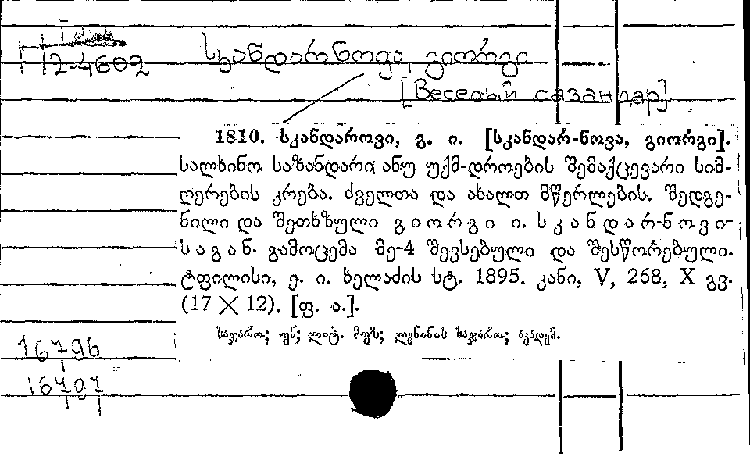 12-4602
სკანდარნოვა, გიორგი
[Веселый сазандар]
1810. სკანდაროვი, გ. ი. [სკანდარ-ნოვა, გიორგი].
სალხინო საზანდარი ანუ უქმ-დროების შემაქცევარი სიმ-
ღერების კრება. ძველთა და ახალთ მწერლების. შედგე-
ნილი და შეთხზული გიორგი ი. სკანდარ-ნოვი-
საგან. გამოცემა მე-4 შევსებული და შესწორებული.
ტფილისი, ე. ი. ხელაძის სტ. 1895. კანი, V, 268, X გვ.
(17 X 12). [ფ. ა.].
საჯარო; უნ; ლიტ. მუზ; ლენინის საჯარო; აკადემ.
16796
16797